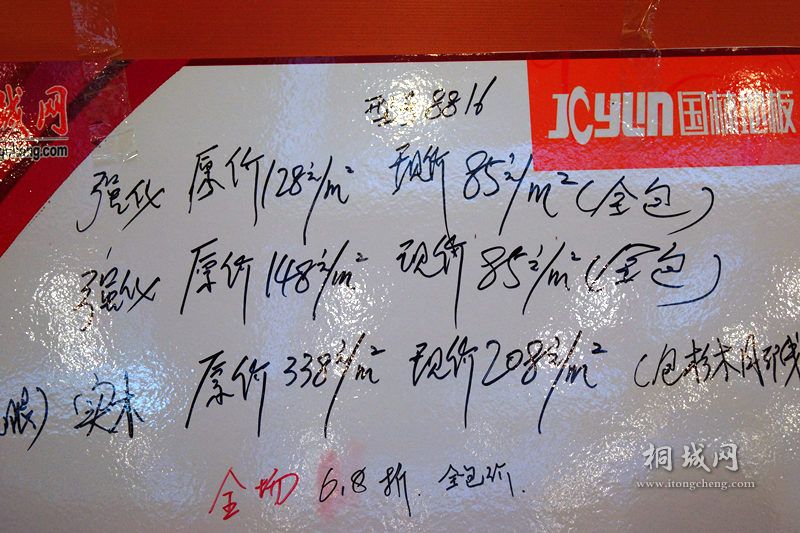 城网
JOYLIN国林地板
型号8816
强化 原价128元/m² 现价85元/m²(全包)
强化 原价148元/m² 现价85元/m²(全包)
眼) 实木 原价338元/m² 现价208元/m² (包粉末
全场 6.8折. 全包价.
桐城网
www.itongcheng.com